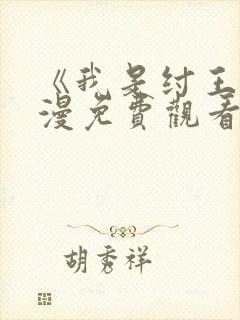 《我是纣王
漫免費觀看
胡秀祥